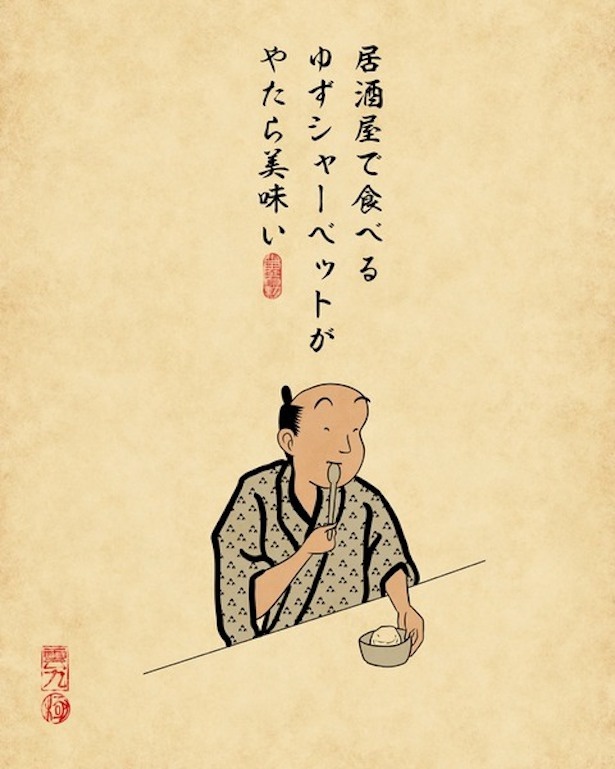 居酒屋で食べる
ゆずシャーベットが
やたら美味い